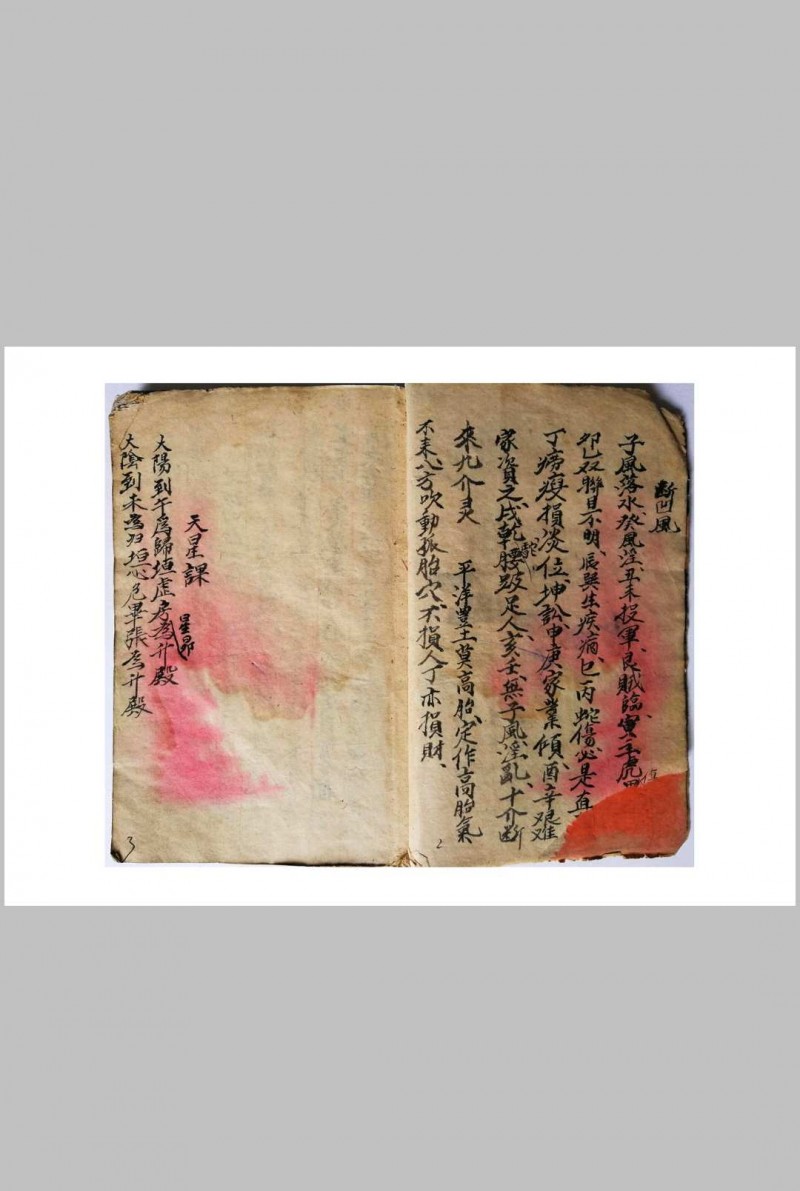 斷凹風
子風落水癸風淫、丑未投軍民賊臨、寅甲虎
卯乙双聯目不明、辰巽生疾病、巳丙蛇傷必是真
丁癆瘦損淡位、坤訟申庚家業傾、酉辛艱难
家資乏戌乾腰跛足人亥壬無子風淫亂、十介断
蛇
來九介灵
平洋豊土莫高胎、定作高胎氣
不来、八方吹動振胎穴、不損人丁亦損財、
2
天星課
太陽到午為歸垣虚房為升殿
星昴
太陰到未為归垣心危畢張為升殿
3